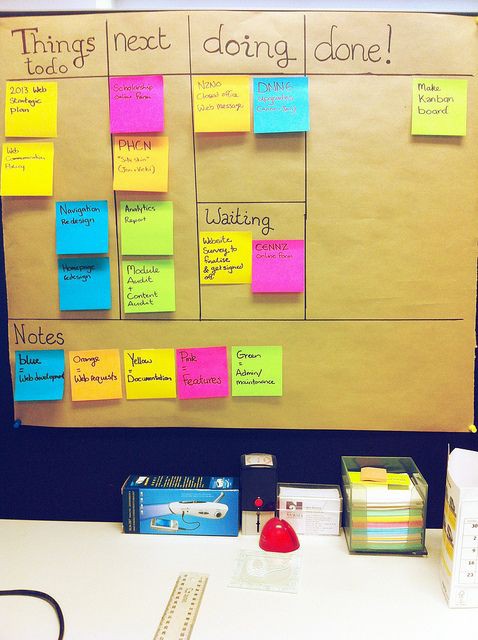 Things
todo
next
doing
done!
2013 Web
Strategic
Plan
Web
Communication
Policy
Navigation
Redesign
Homepage
redesign
Scholarship
online Form
PHCN
"Site skin"
Analytics
Report
Module
Audit
+
Content
Audit
NZNO
Closed office
Web message
DNNG
upgrades
Waiting
Website
Survey to
finalise
& get signed
off
CENNZ
Online form
Make
Kanban
board
Notes
blue
=
Web development
Orange
=
Web requests
Yellow
=
Documentation
Pink
=
Features
Green
=
Admin/
maintenance
30
2
9
16
23